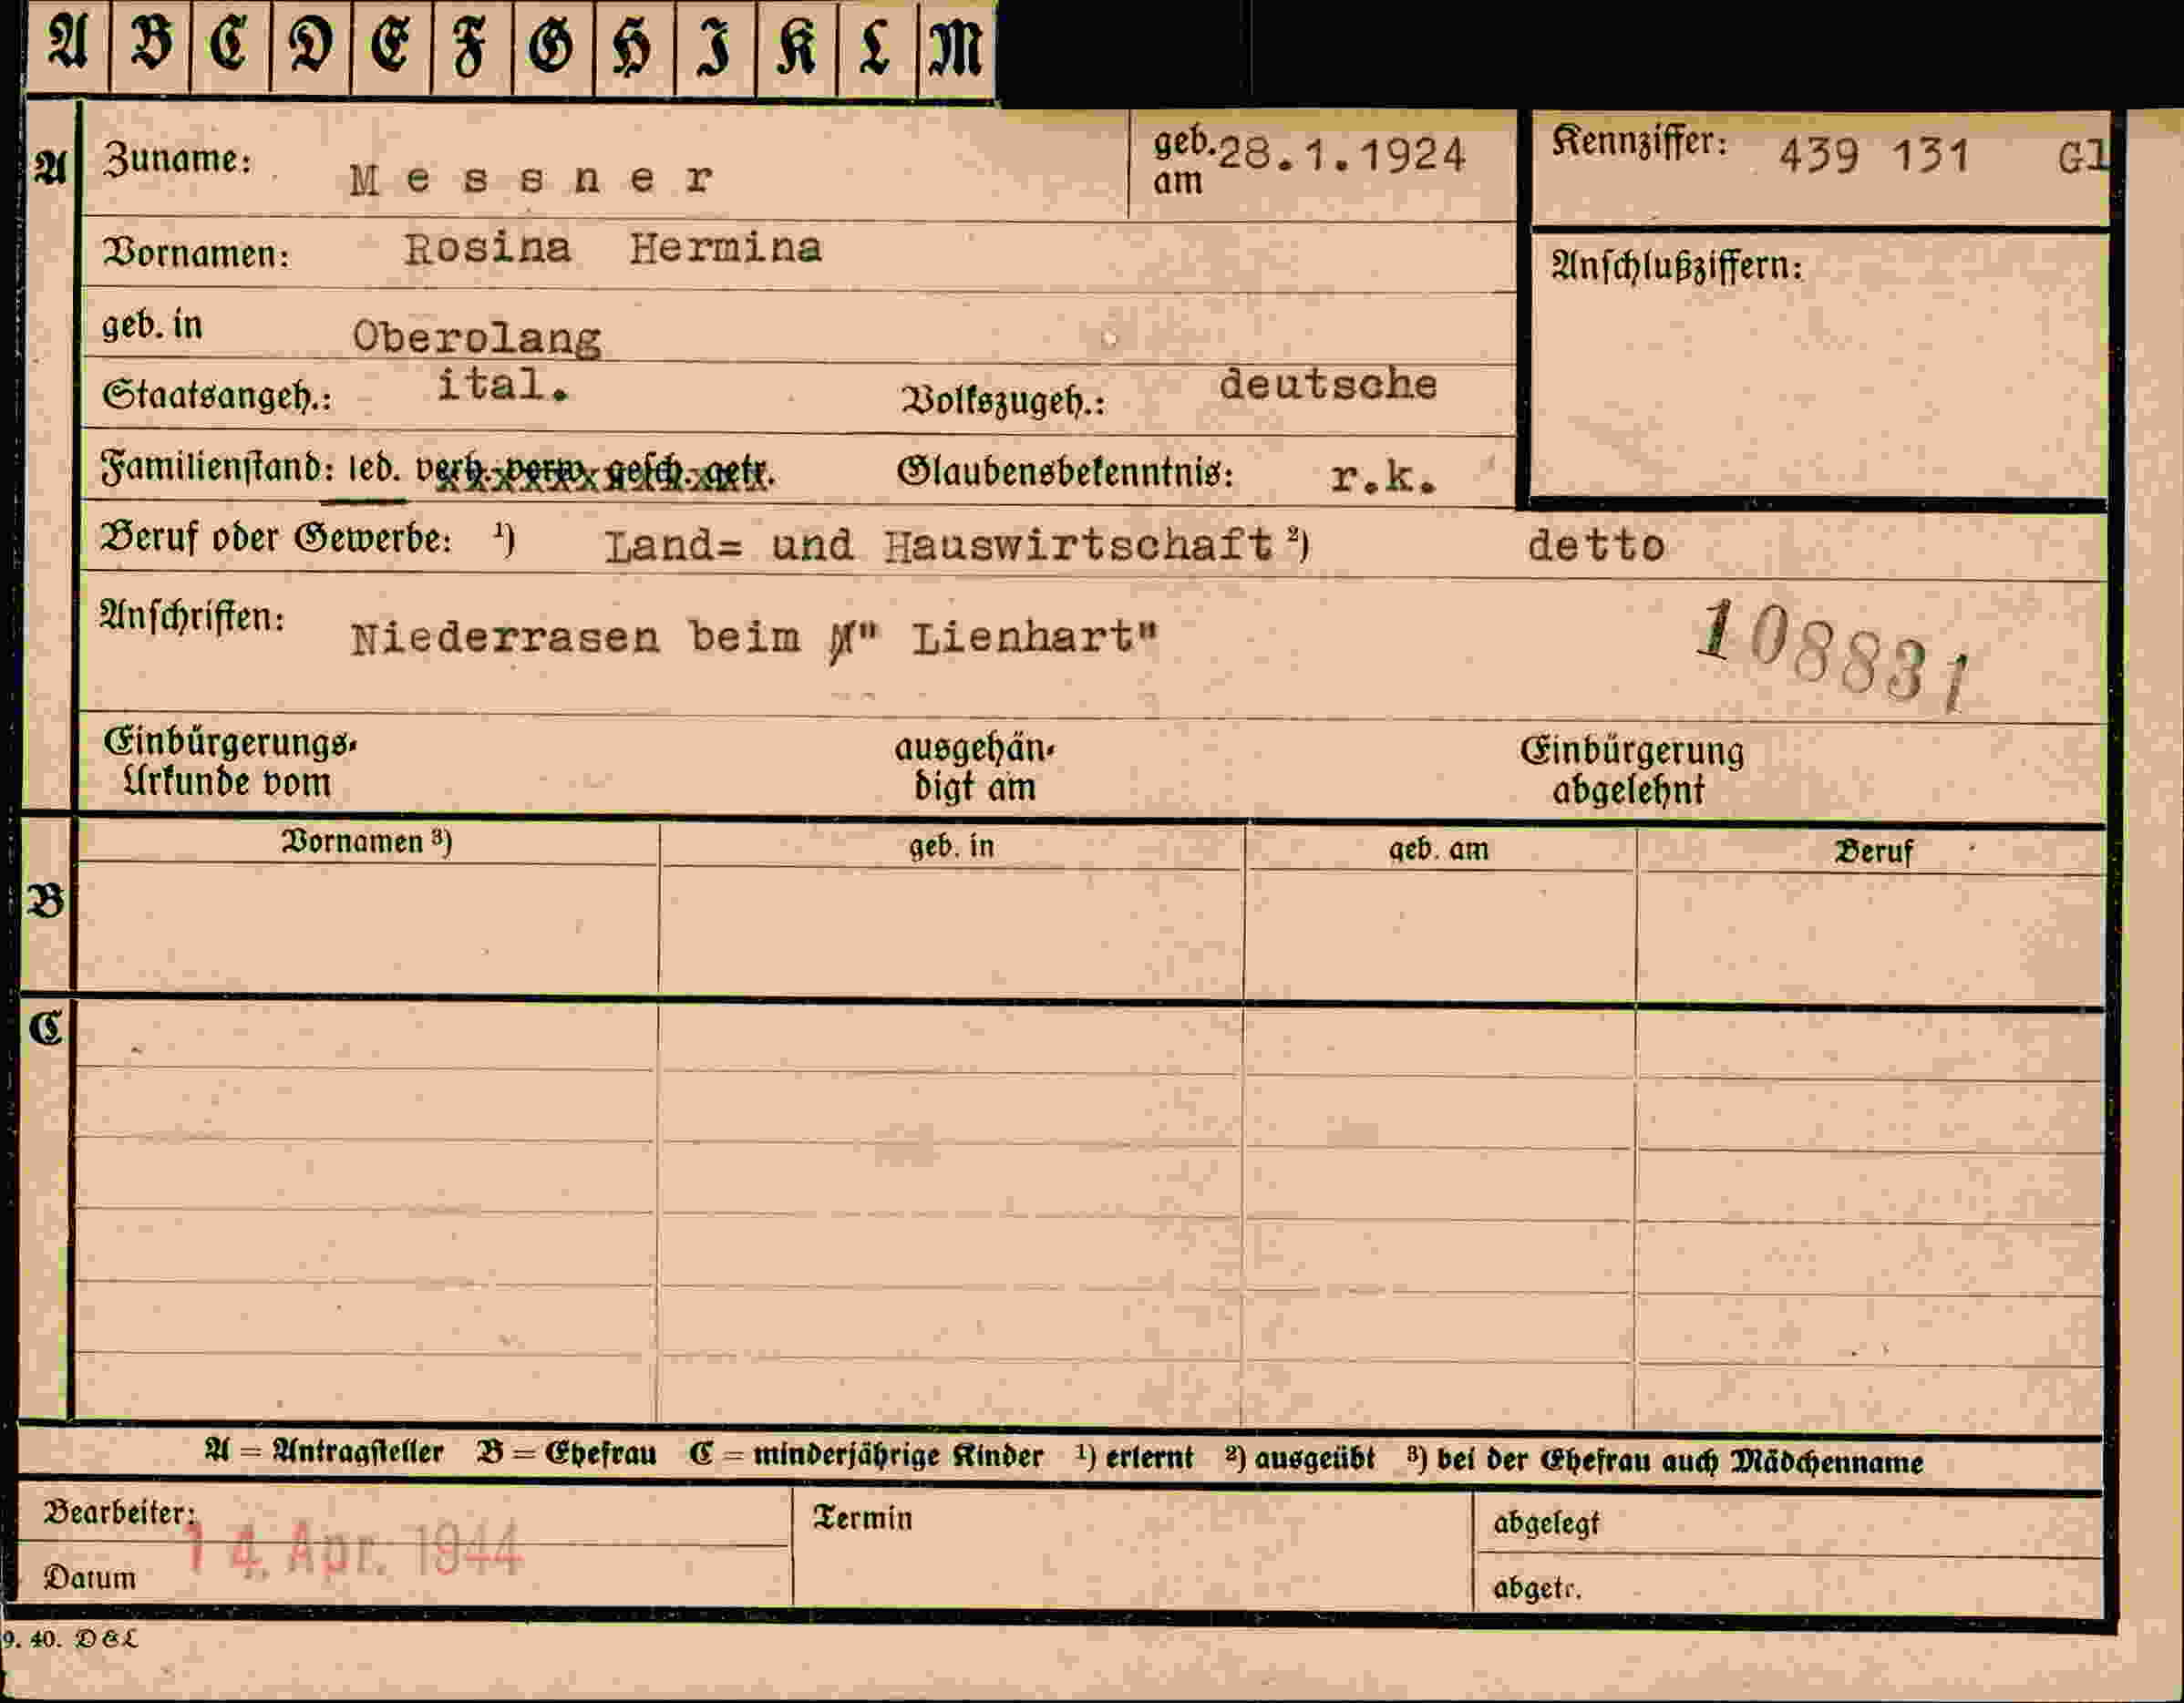 A B C D E F G H I K L M
A Zuname: Messner geb. am 28.1.1924 Kennziffer: 439 131 Gl
Vornamen: Rosina Hermina Anschlußziffern:
geb. in Oberolang
Staatsangeh.: ital. Volkszugeh.: deutsche
Familienstand: led. verh. verw. gesch. getr. Glaubensbekenntnis: r.k.
Beruf oder Gewerbe: ¹) Land= und Hauswirtschaft ²) detto
Anschriften: Niederrasen beim " Lienhart" 108831
Einbürgerungs- ausgehän- Einbürgerung
Urkunde vom digt am abgelehnt
Vornamen ³) geb. in geb. am Beruf
B
C
A = Antragsteller B = Ehefrau C = minderjährige Kinder ¹) erlernt ²) ausgeübt ³) bei der Ehefrau auch Mädchenname
Bearbeiter: Termin abgelegt
14. Apr. 1944
Datum abgetr.
9. 40. DEL